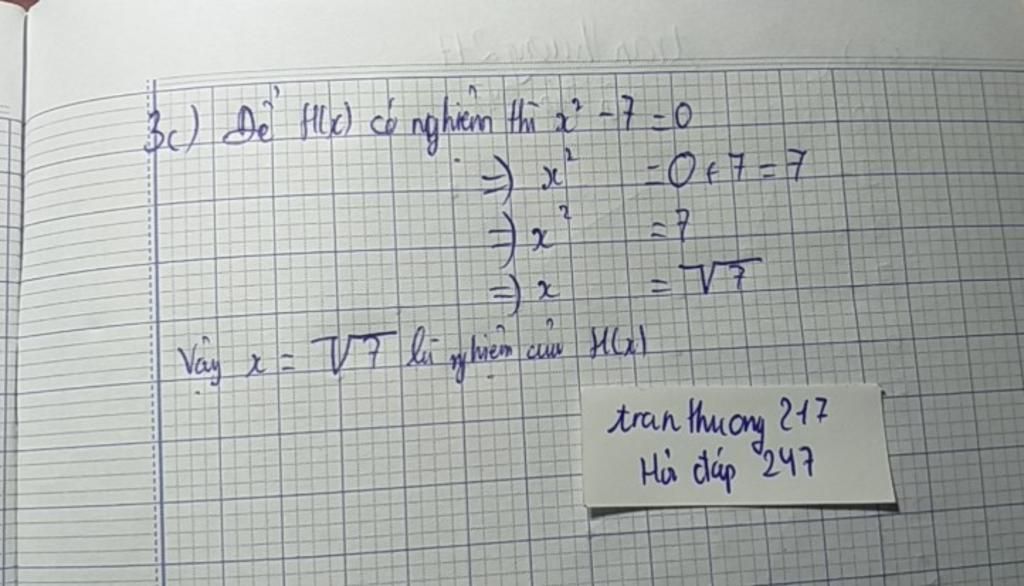 3c) Để H(x) có nghiệm thì x² - 7 = 0
=> x² = 0 + 7 = 7
=> x² = 7
=> x = √7
Vậy x = √7 là nghiệm của H(x)
tranthuong 217
Hỏi đáp 247